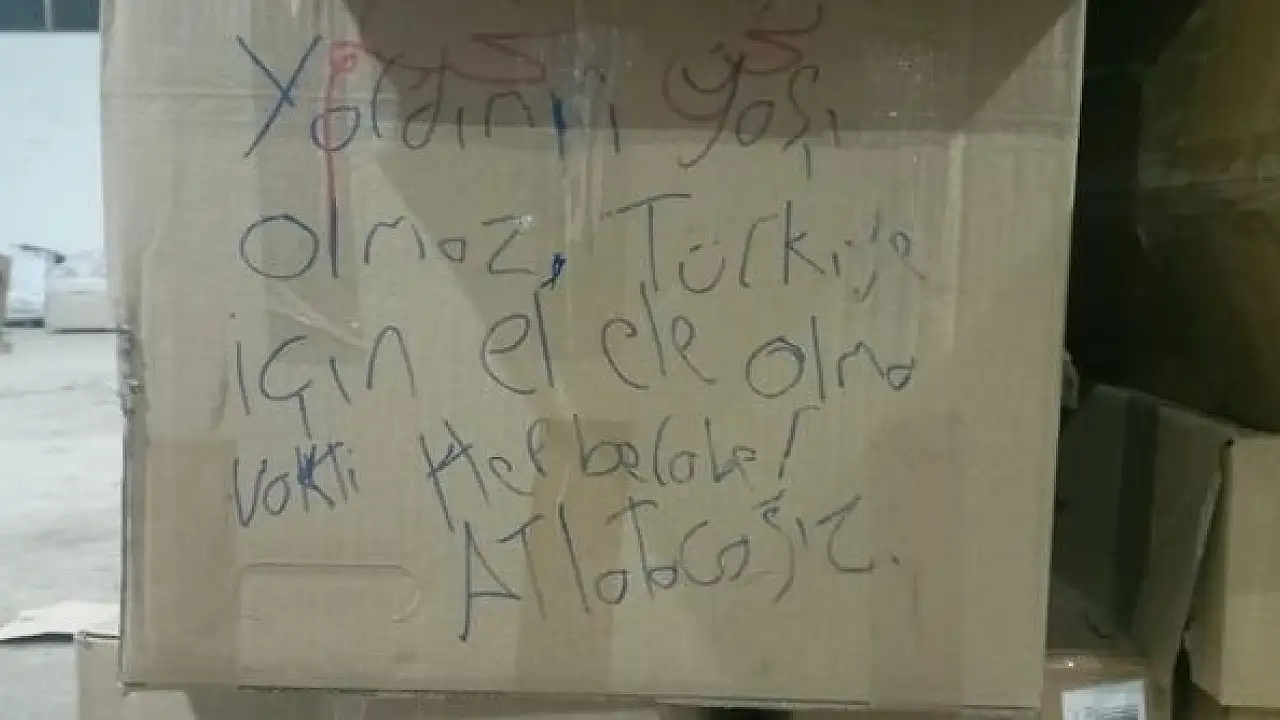 Yardımın yaşı
olmaz, Türkiye
için el ele olma
vakti Her belayı
Atlatacağız.